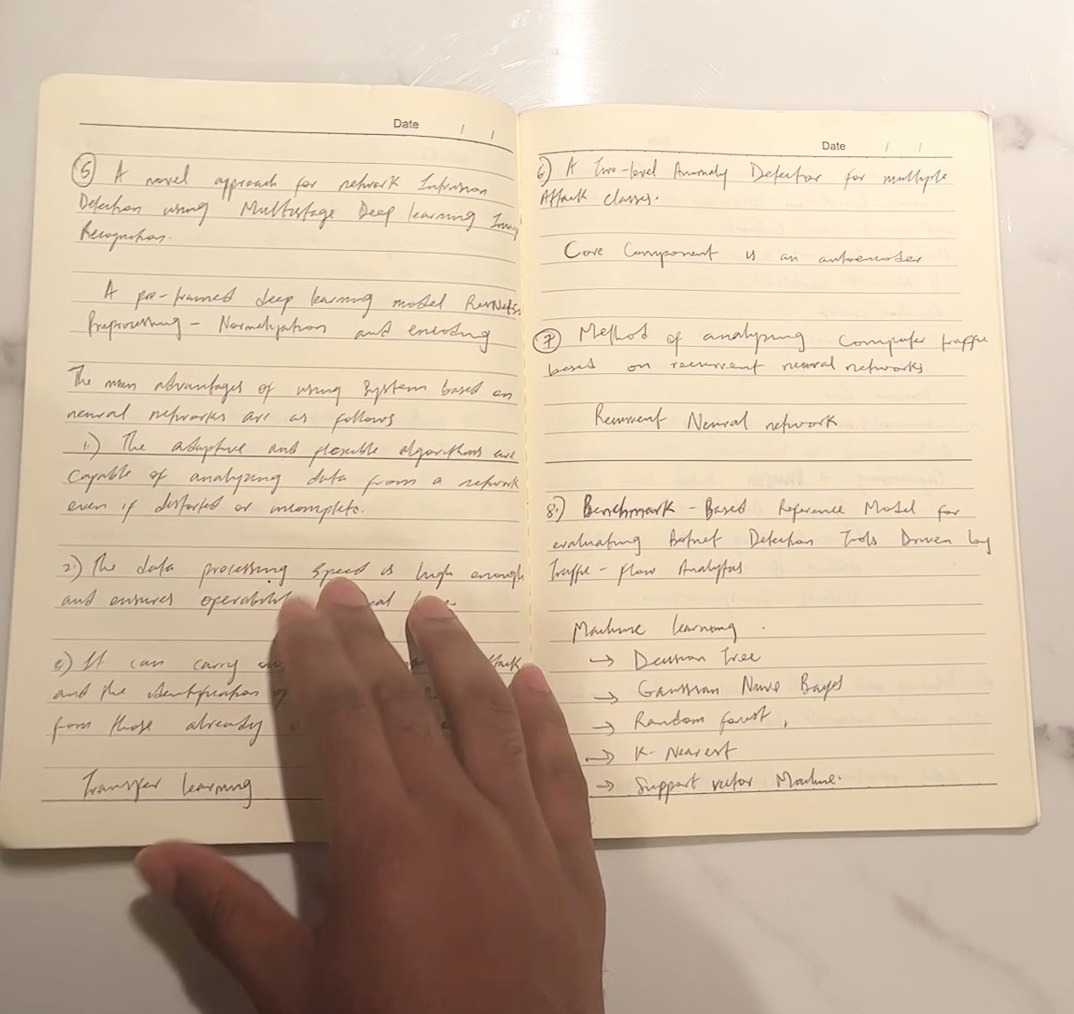 Date / /
⑤ A novel approach for network Intrusion
Detection using Multistage Deep learning
Recognition.
A pre-trained deep learning model
Preprocessing - Normalization and encoding
The main advantages of using system based on
neural networks are as follows
1.) The adaptive and flexible algorithms are
capable of analyzing data from a network
even if distorted or incomplete.
2.) The data processing speed is high enough
and ensures
It can carry
and the identification
from those already
Transfer learning
Date / /
6) A Two-level Anomaly Detector for multiple
Attack classes.
Core Component is an autoencoder
⑦ Method of analyzing computer traffic
based on recurrent neural networks
Recurrent Neural network
8.) Benchmark - Based Reference Model for
evaluating Botnet Detection Tools Driven by
Traffic - Flow Analytics
Machine learning.
→ Decision Tree
→ Gaussian Naive Bayes
→ Random forest,
→ K-Nearest
→ Support vector Machine.